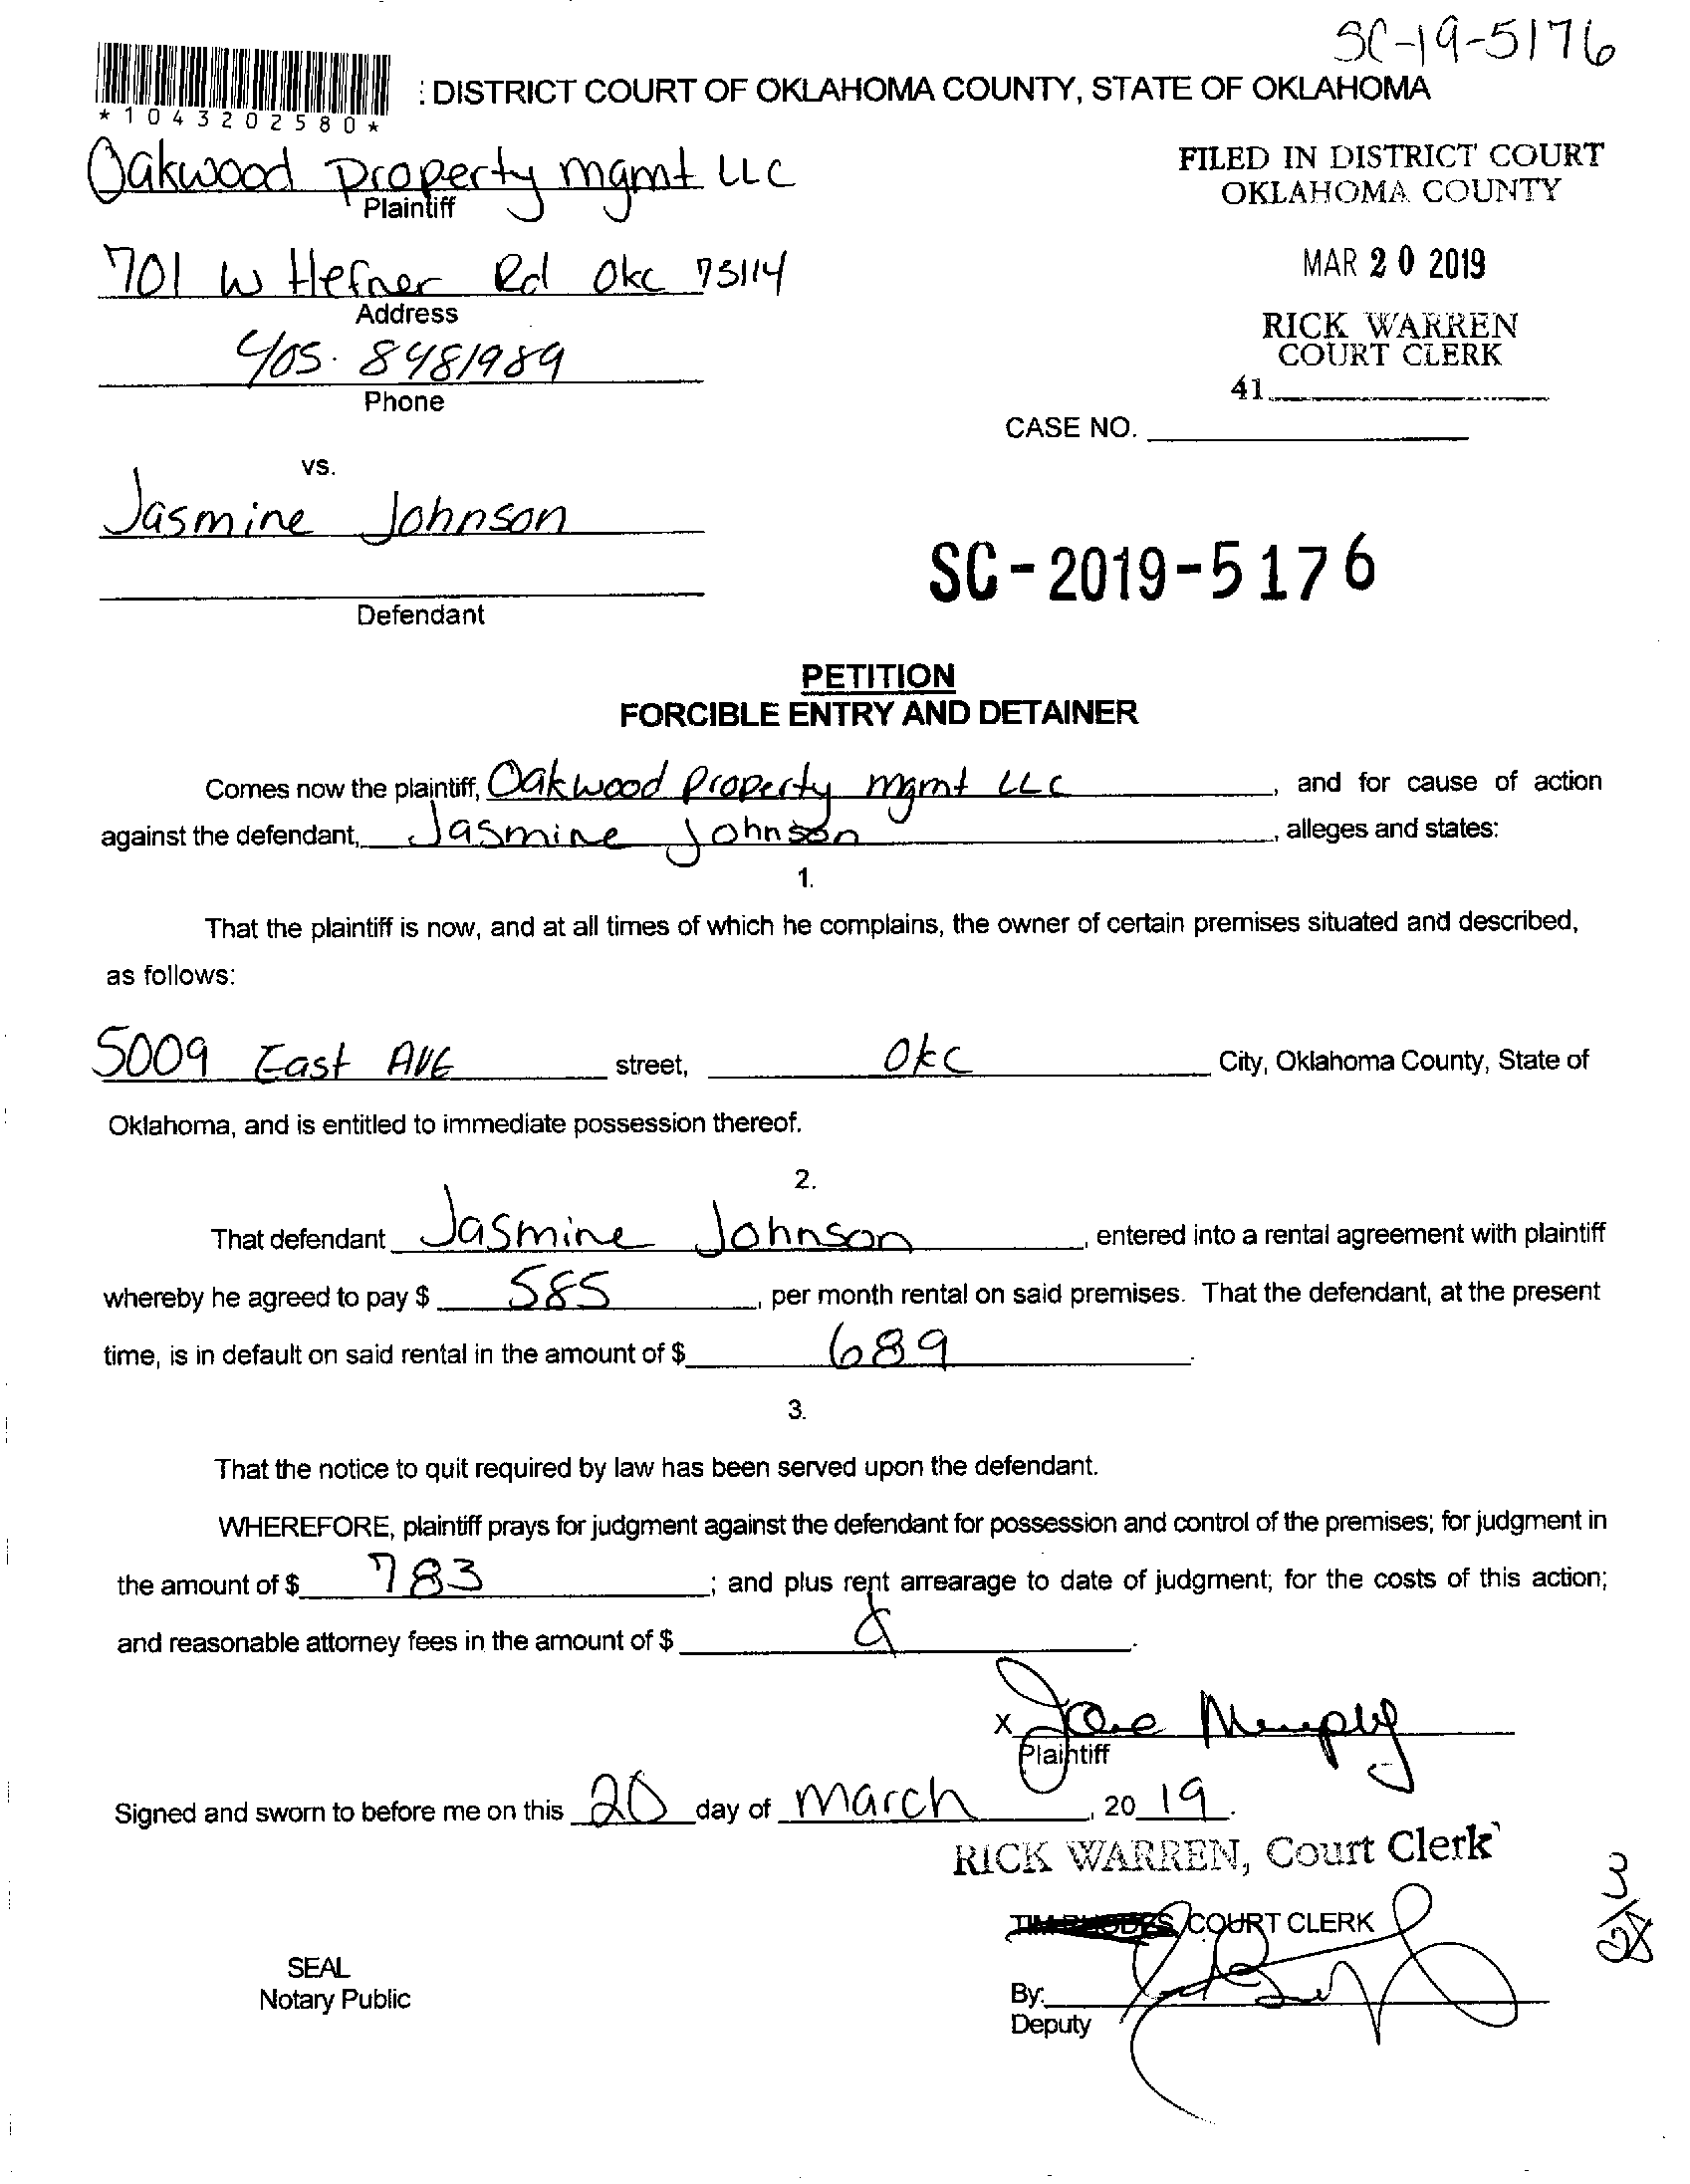 SC-19-5176
*1043202580*
: DISTRICT COURT OF OKLAHOMA COUNTY, STATE OF OKLAHOMA
Oakwood Property mgmt LLC
Plaintiff
FILED IN DISTRICT COURT
OKLAHOMA COUNTY
701 W Hefner Rd Okc 73114
Address
MAR 20 2019
405. 8481989
Phone
RICK WARREN
COURT CLERK
41
CASE NO.
vs.
Jasmine Johnson
Defendant
SC-2019-5176
PETITION
FORCIBLE ENTRY AND DETAINER
Comes now the plaintiff, Oakwood Property mgmt LLC, and for cause of action
against the defendant, Jasmine Johnson, alleges and states:
1.
That the plaintiff is now, and at all times of which he complains, the owner of certain premises situated and described,
as follows:
5009 East AVE street, OKC City, Oklahoma County, State of
Oklahoma, and is entitled to immediate possession thereof.
2.
That defendant Jasmine Johnson, entered into a rental agreement with plaintiff
whereby he agreed to pay $ 585, per month rental on said premises. That the defendant, at the present
time, is in default on said rental in the amount of $ 689.
3.
That the notice to quit required by law has been served upon the defendant.
WHEREFORE, plaintiff prays for judgment against the defendant for possession and control of the premises; for judgment in
the amount of $ 783; and plus rent arrearage to date of judgment; for the costs of this action;
and reasonable attorney fees in the amount of $
x Jane Murphy
Plaintiff
Signed and sworn to before me on this 20 day of March, 2019.
RICK WARREN, Court Clerk
TIM RHODES, COURT CLERK
SEAL
Notary Public
By:
Deputy